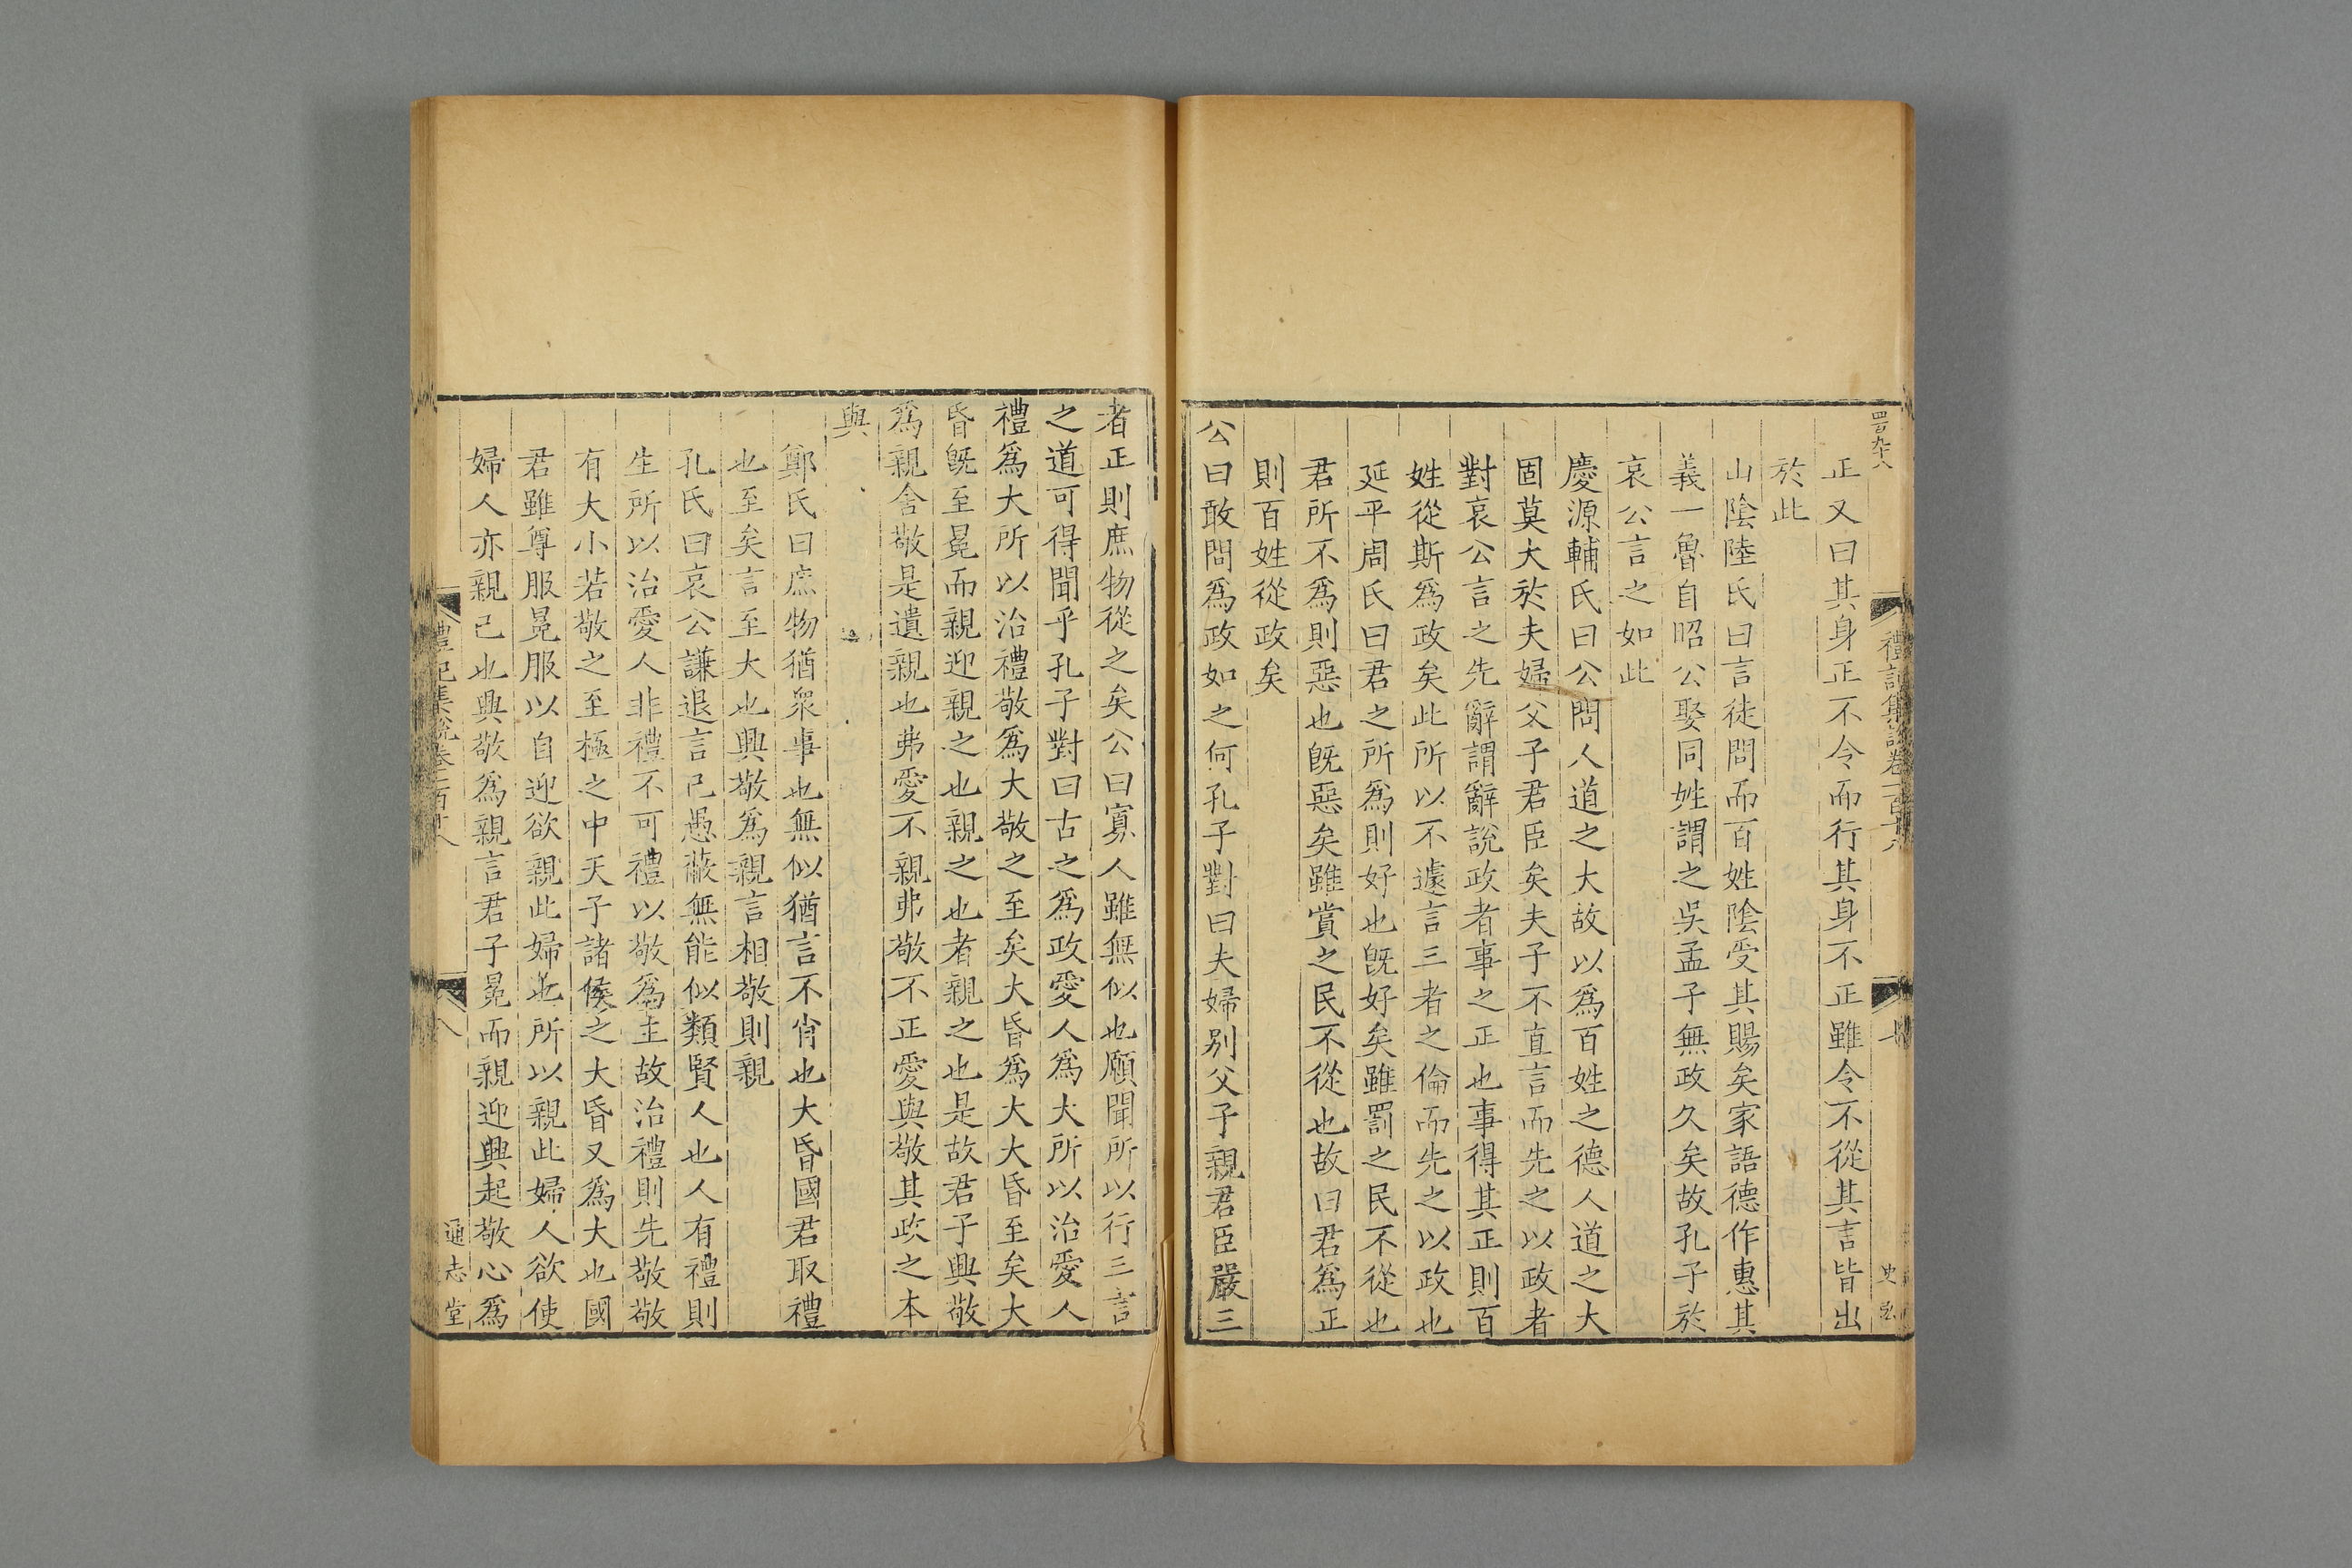 四百九十八
禮記集說卷一百十八
七
史
正又曰其身正不令而行其身不正雖令不從其言皆出
於此
山陰陸氏曰言徒問而百姓陰受其賜矣家語德作惠其
義一魯自昭公娶同姓謂之吳孟子無政久矣故孔子於
哀公言之如此
慶源輔氏曰公問人道之大故以爲百姓之德人道之大
固莫大於夫婦父子君臣矣夫子不直言而先之以政者
對哀公言之先辭謂辭說政者事之正也事得其正則百
姓從斯爲政矣此所以不遽言三者之倫而先之以政也
延平周氏曰君之所爲則好也旣好矣雖罰之民不從也
君所不爲則惡也旣惡矣雖賞之民不從也故曰君爲正
則百姓從政矣
公曰敢問爲政如之何孔子對曰夫婦別父子親君臣嚴三
者正則庶物從之矣公曰寡人雖無似也願聞所以行三言
之道可得聞乎孔子對曰古之爲政愛人爲大所以治愛人
禮爲大所以治禮敬爲大敬之至矣大昏爲大大昏至矣大
昏旣至冕而親迎親之也親之也者親之也是故君子興敬
爲親舍敬是遺親也弗愛不親弗敬不正愛與敬其政之本
與
鄭氏曰庶物猶衆事也無似猶言不肖也大昏國君取禮
也至矣言至大也興敬爲親言相敬則親
孔氏曰哀公謙退言己愚蔽無能似類賢人也人有禮則
生所以治愛人非禮不可禮以敬爲主故治禮則先敬敬
有大小若敬之至極之中天子諸侯之大昏又爲大也國
君雖尊服冕服以自迎欲親此婦也所以親此婦人欲使
婦人亦親己也興敬爲親言君子冕而親迎興起敬心爲
禮記集說卷一百十八
八
通志堂